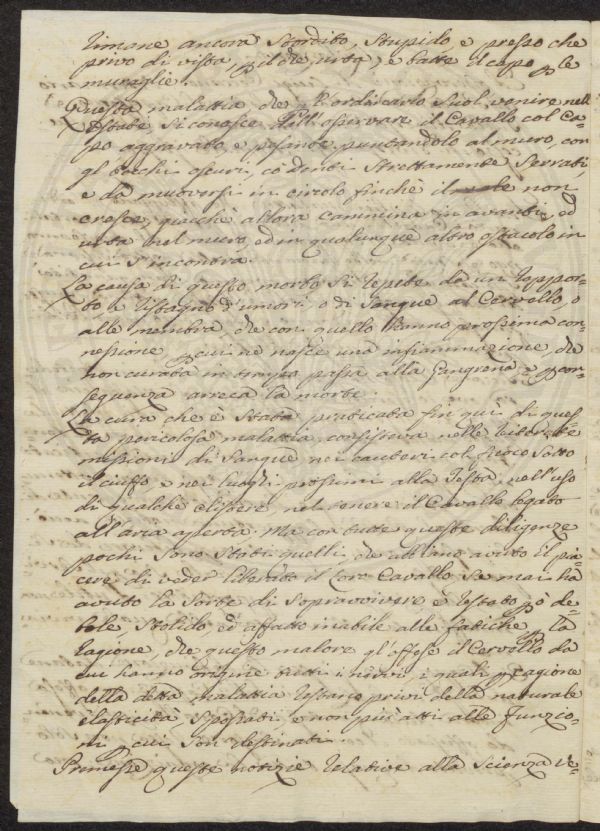 rimane ancora stordito, stupido, e presso che
privo di vista, p il che, urta, e batte il capo p le
muraglie.
Questa malattia che p l'ordinario suol venire nell'
Estate si conosce dall'osservare il Cavallo col Ca=
po aggravato, e pesante puntandolo al muro, con
gl'occhi oscuri, co' denti strettamente serrati,
e da muoversi in circolo finchè il male non
cresce, giacchè allora cammina in avanti, ed
urta nel muro, ed in qualunque altro ostacolo in
cui s'incontra.
La causa di questo morbo si repete da un rappor=
to, e ristagno d'umori, o di sangue al Cervello, o
alle membra, che con quello hanno prossima con=
nessione, p cui ne nasce una infiammazione, che
non curata in tempo passa alla gangrena, e p con=
seguenza arreca la morte.
La cura che è stata praticata fin quì di ques=
ta pericolosa malattia consisteva nelle
missioni di sangue nei cauteri col fuoco sotto
il ciuffo, e nei luoghi prossimi alla Testa, nell'uso
di qualche clistere nel tenere il Cavallo legato
all'aria aperta. Ma con tutte queste diligenze
pochi sono stati quelli, che abbiano avuto il pia=
cere di veder liberato il loro Cavallo. Se mai ha
avuto la sorte di sopravvivere è restato o de=
bole stolido ed affatto inabile alle fatiche, p la
ragione, che questo malore gl'offese il Cervello da
cui hanno origine tutti i nervi, i quali p cagione
della detta malattia restano privi della naturale
elasticità, spossati, e non più atti alle funzio=
ni, p cui son destinati.
Premesse queste notizie relative alla scienza ve=